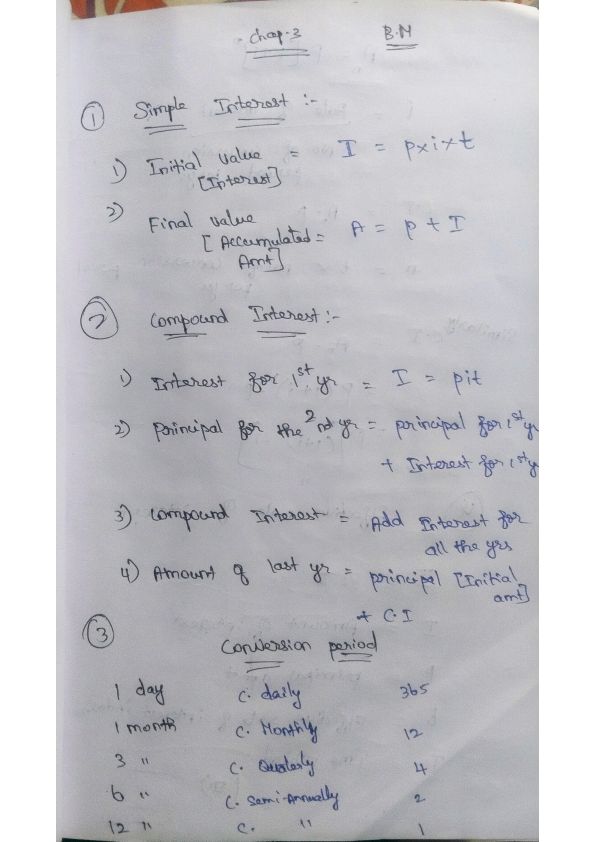 Chap-3 B.M
① Simple Interest :-
1) Initial value = I = p×i×t
[Interest]
2) Final value
[Accumulated = A = p + I
Amt]
② Compound Interest :-
1) Interest for 1st yr = I = pit
2) Principal for the 2nd yr = principal for 1st yr
+ Interest for 1st y
3) Compound Interest = Add Interest for
all the yrs
4) Amount of last yr = principal [Initial
amt]
+ C.I
③ Conversion period
1 day C. daily 365
1 month C. Monthly 12
3 " C. Quaterly 4
6 " C. Semi-Annually 2
12 " C. " 1